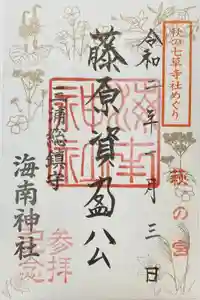 秋の七草寺社めぐり
令和二年一月三日
萩の宮
藤原資盈公
三浦総鎮守
海南神社
参拝
記念